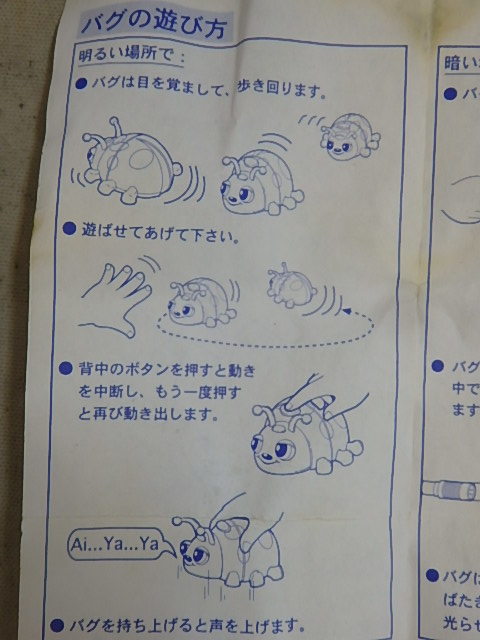 バグの遊び方
明るい場所で：
●バグは目を覚まして、歩き回ります。
●遊ばせてあげて下さい。
●背中のボタンを押すと動き
を中断し、もう一度押す
と再び動き出します。
Ai...Ya...Ya
●バグを持ち上げると声を上げます。
暗い
●バ
●バグ
中で
ます
●バグは
ばたき
光らせ